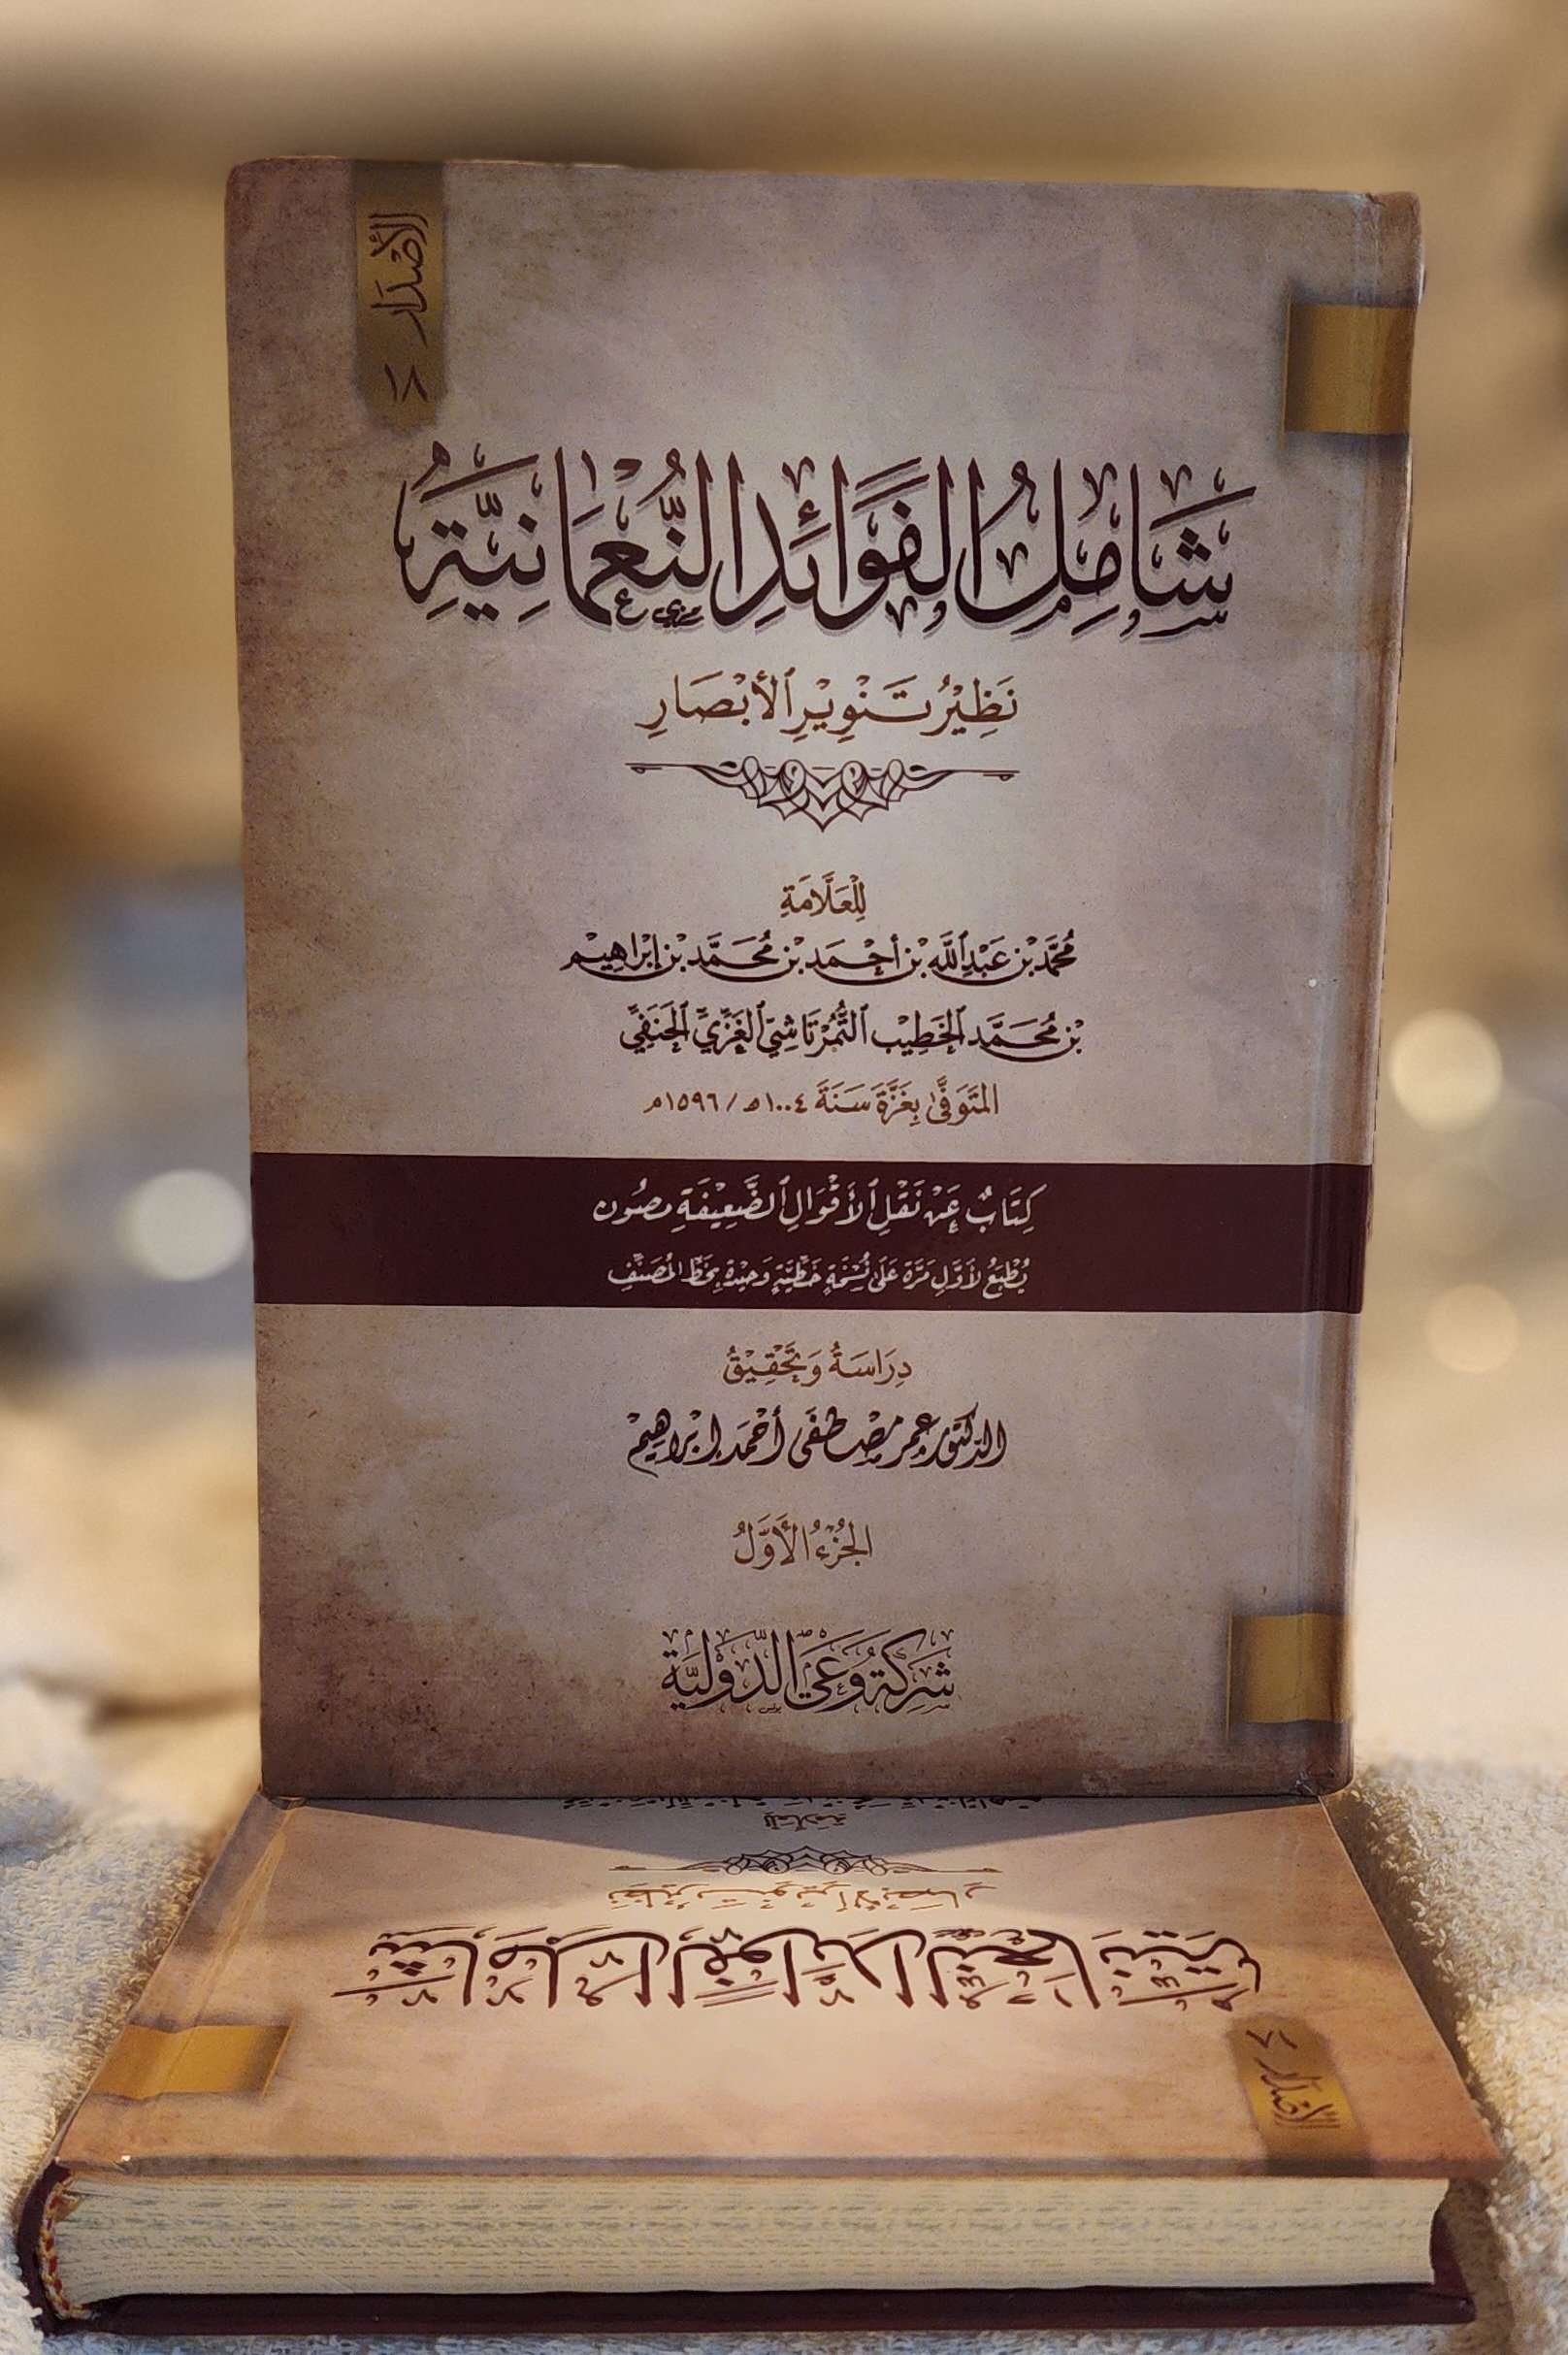 الأصدار ٢
شَامِلُ الفَوَائِدِ النُّعْمَانِيَّةِ
نَظِيْرُ تَنْوِيْرِ ٱلأَبْصَارِ
لِلْعَلَّامَةِ
مُحَمَّد بْن عَبْدِ ٱللَّه بْن أَحْمَد بْن مُحَمَّد بْن إِبْرَاهِيْم
بْن مُحَمَّد ٱلخَطِيْب ٱلتُّمُرْتَاشِيّ ٱلغَزِّيّ ٱلحَنَفِيّ
المُتَوَفَّىٰ بِغَزَّةَ سَنَةَ ١٠٠٤هـ / ١٥٩٦م
كِتَابٌ عَنْ نَقْلِ ٱلأَقْوَالِ ٱلضَّعِيْفَةِ مصُون
يُطْبَعُ لأَوَّلِ مَرَّة عَلَىٰ نُسْخَةٍ خَطِّيَّةٍ وَحِيْدَة بِخَطِّ المُصَنِّفِ
دِرَاسَةُ وَتَحْقِيْقُ
الدكتور عمر مصْطفَى أحْمَد إبْرَاهِيْم
الجُزْءُ الأَوَّلُ
شَرِكَة وَعْيَ الدّوَليَّة
شَامِلُ الفَوَائِدِ النُّعْمَانِيَّةِ
نَظِيْرُ تَنْوِيْرِ ٱلأَبْصَارِ
لِلْعَلَّامَةِ